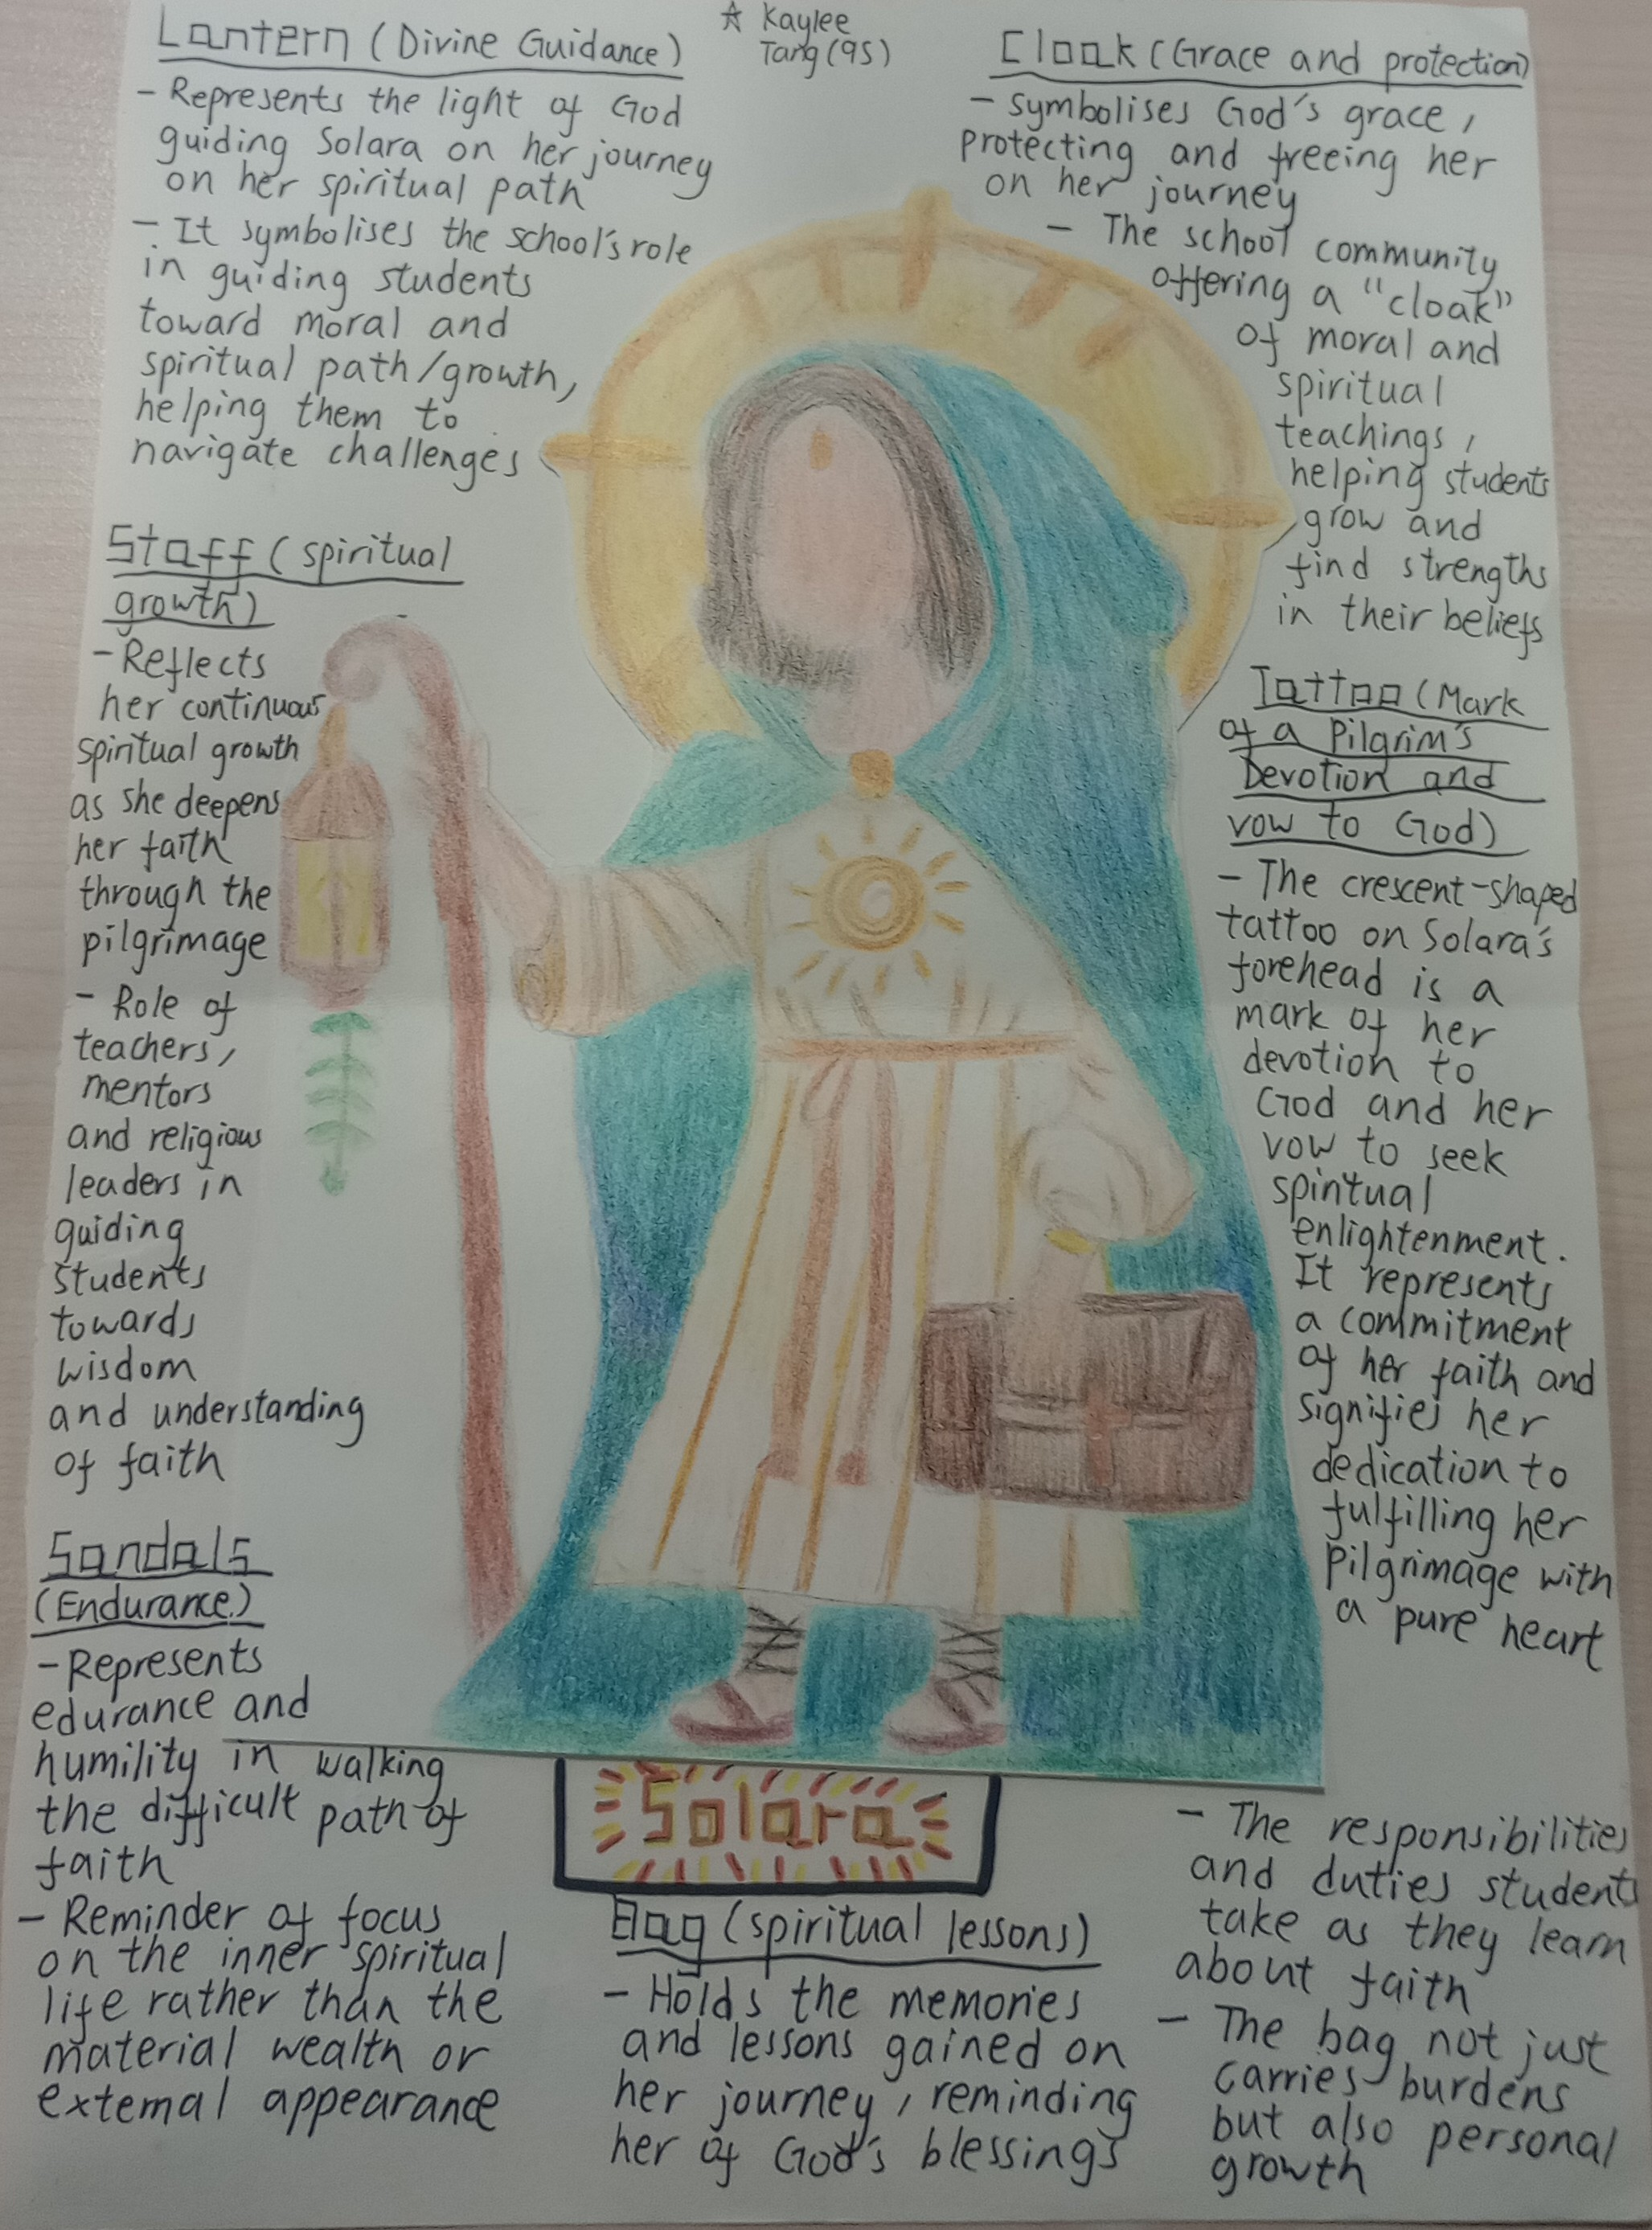 Lantern (Divine Guidance)
- Represents the light of God
guiding Solara on her journey
on her spiritual path
- It symbolises the school's role
in guiding students
toward moral and
spiritual path/growth,
helping them to
navigate challenges
☆ Kaylee
Tang (9S)
Cloak (Grace and protection)
- symbolises God's grace,
protecting and freeing her
on her journey
- The school community
offering a "cloak"
of moral and
spiritual
teachings,
helping students
grow and
find strengths
in their beliefs
Staff (spiritual
growth)
- Reflects
her continuous
spiritual growth
as she deepens
her faith
through the
pilgrimage
- Role of
teachers,
mentors
and religious
leaders in
guiding
students
towards
wisdom
and understanding
of faith
Tattoo (Mark
of a Pilgrim's
Devotion and
vow to God)
- The crescent-shaped
tattoo on Solara's
forehead is a
mark of her
devotion to
God and her
vow to seek
spiritual
enlightenment.
It represents
a commitment
of her faith and
signifies her
dedication to
fulfilling her
Pilgrimage with
a pure heart
Sandals
(Endurance)
- Represents
edurance and
humility in walking
the difficult path of
faith
- Reminder of focus
on the inner spiritual
life rather than the
material wealth or
external appearance
Solara
Bag (spiritual lessons)
- Holds the memories
and lessons gained on
her journey, reminding
her of God's blessings
- The responsibilities
and duties students
take as they learn
about faith
- The bag not just
carries burdens
but also personal
growth